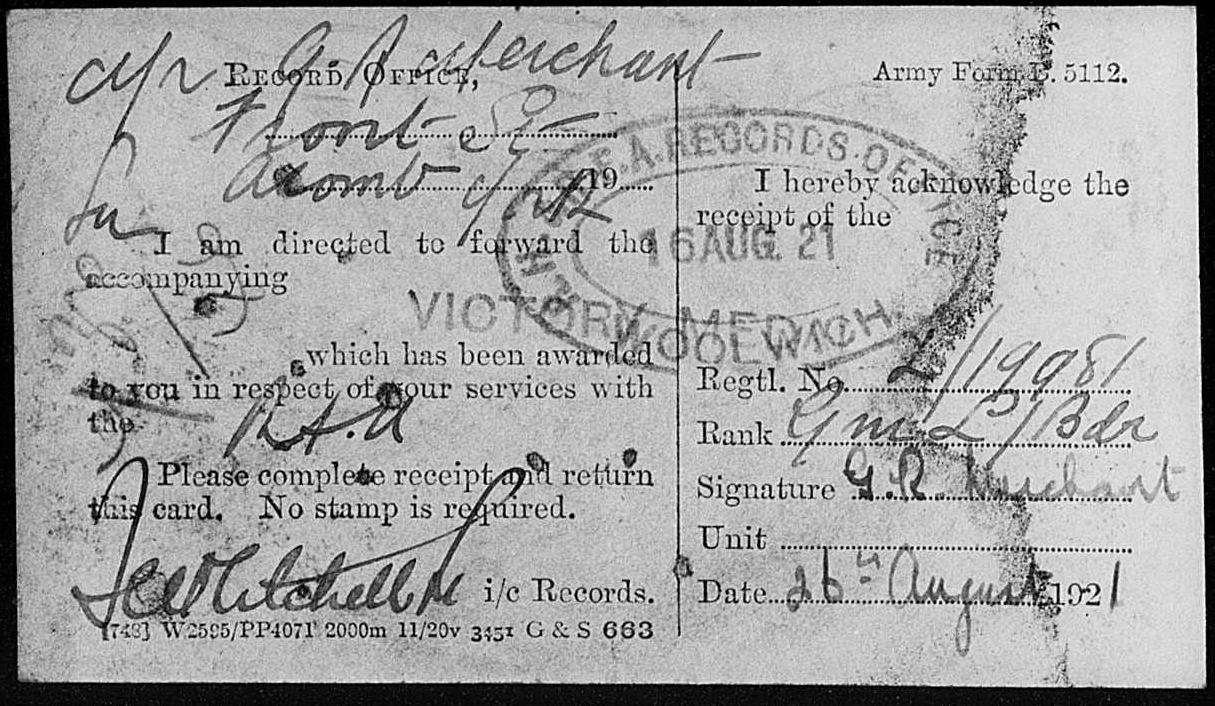 G R Merchant
RECORD OFFICE,
Front St
Acomb York
19
I am directed to forward the
accompanying
VICTORY MEDAL
which has been awarded
to you in respect of your services with
the R.H.A
Please complete receipt and return
this card. No stamp is required.
i/c Records.
[748] W2595/PP4071 2000m 11/20v 3451 G & S 663
Army Form B. 5112.
R.H. & R.F.A. RECORDS OFFICE
16 AUG. 21
WOOLWICH.
I hereby acknowledge the
receipt of the
Regtl. No. L/19981
Rank Gnr L/Bdr
Signature G.R. Merchant
Unit
Date 26th August 1921